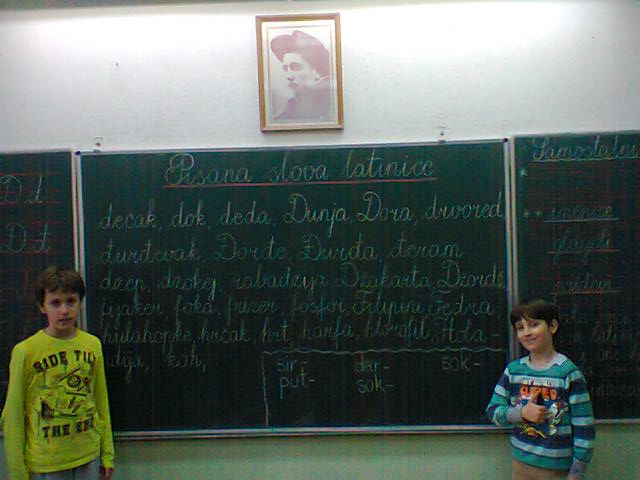 Pisana slova latinice
D d
Đ đ
dečak, dok, deda, Dunja, Dora, drvored,
đurđevak, Đorđe, Đurđa, đeram
džep, džokej, rabadžija Džakarta, Džordž
fijaker foka, frizer, fosfor, Filipini, Fedra
hulahopke, hrčak, hrt, harfa, hlorofil, Hola-
ndija, eho,
sir, dar- sok-
put- sok-
Samostalni
imenice
glagoli
pridevi
RIDE TILL
THE END
SUPER